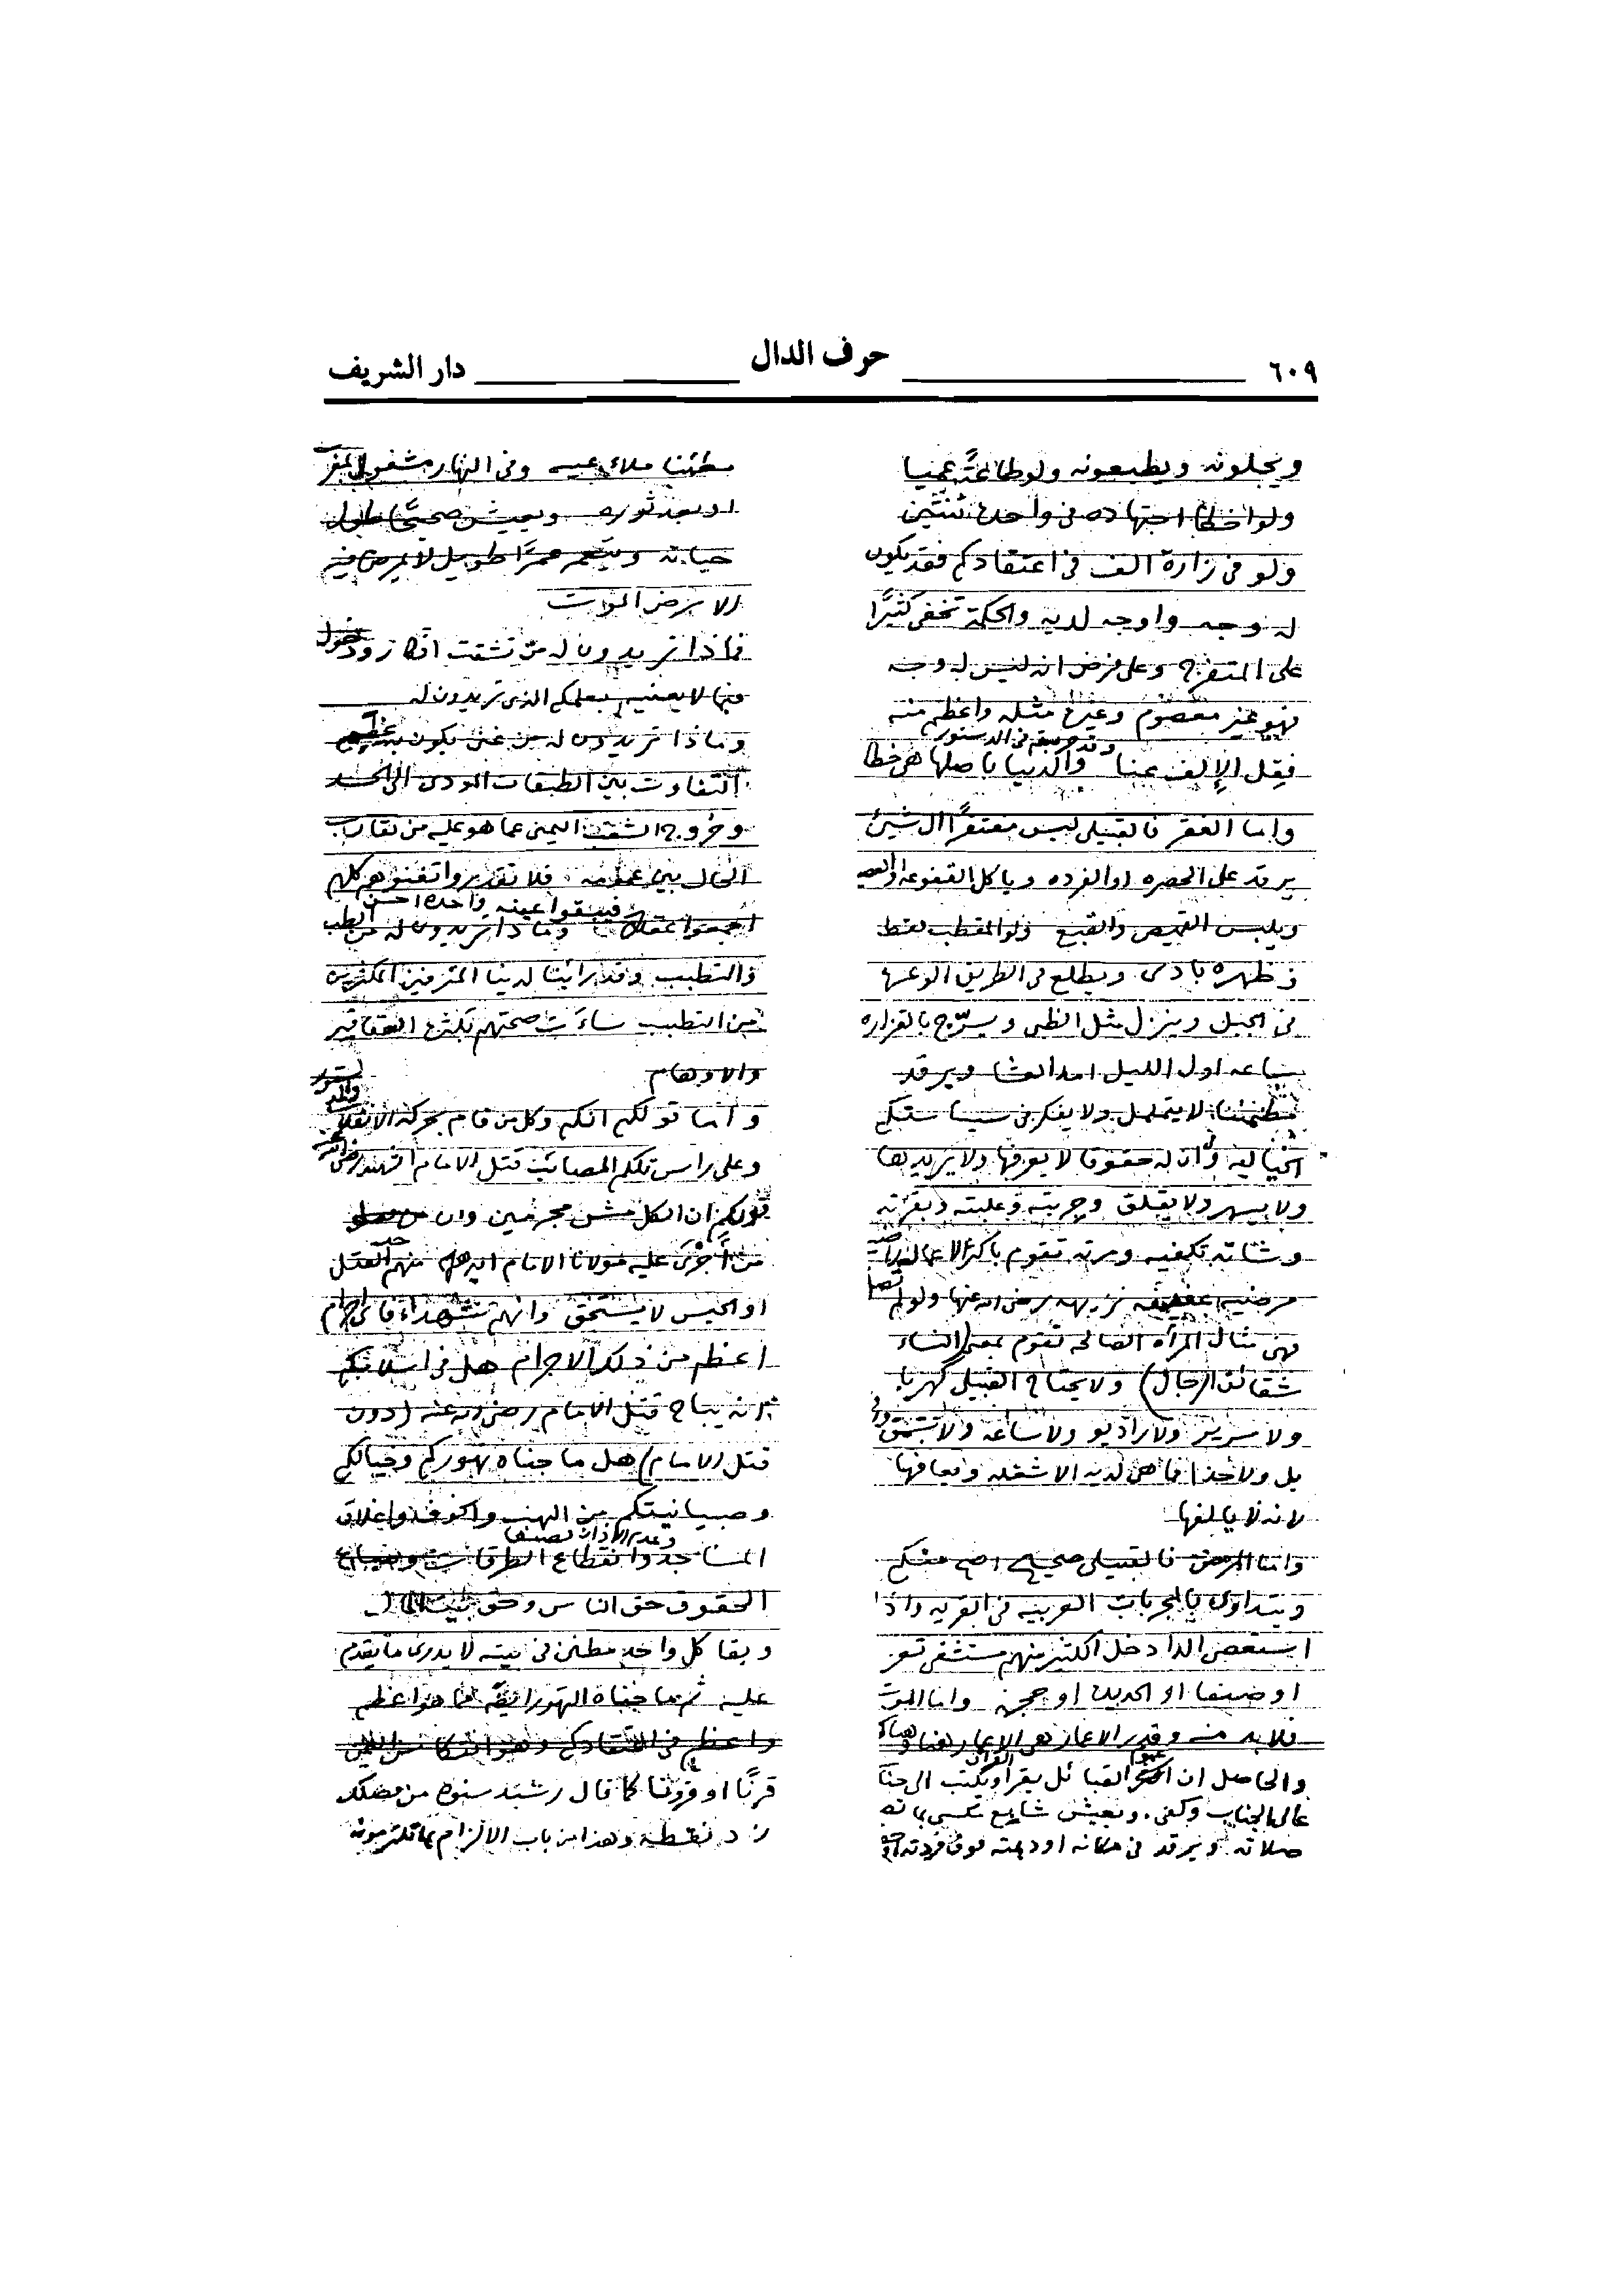 ٦٠٩ حرف الدال دار الشريف
ويجلونه ويطيعونه ولو طاعةً عميا
ولو اخطا اجتهاده فى واحده ثنتين
ولو فى زارة الف فى اعتقادكم فقد يكون
له وجه واوجه لديه والحكمة تخفى كثيرًا
على المتفرج وعلى فرض ان ليس له وجه
فهو غير معصوم وغيره مثله واعظم منه
وقد فى الدستور
فيقل الإلف عنا والدنيا باصلها هى خطا
واما الفقر فالقبيلى ليس مفتقرًا الى شيئ
يرقد على الحصره او الفرده وياكل القفوعه والعصيد
ويلبس القميص والقبع ولو المقطب فقط
وظهره بادى ويطلع فى الطريق الوعرها
فى الجبل وينزل مثل الظبى ويسرّج بالقزازه
ساعه اول الليل امد العشا ويرقد
مطمئنا لا يتململ ولا يفكر فى سياستكم
الخياليه وان له حقوقا لا يعرفها ولا يريدها
ولا يسهر ولا يقلق وجربته وعلبته وبقرته
وشاته تكفيه ومرته تقوم باكثر الاعمال راضيه
مرضيه عفيفه نزيهه رضى الله عنها ولو لم تصل
فهى مثال المرأه الصالحه تقوم بمعنى (النساء
شقائق الرجال) ولا يحتاج القبيلى كهربا
ولا سرير ولا راديو ولا ساعه ولا
بل ولا حذا فما هى لديه الا شغله ويعافها
لانه لا يالفها
واما المرض فالقبيلى صحيح اصح منكم
ويتداوى بالمجربات العربيه فى القريه واذا
استعصى الدا دخل الكثير منهم مستشفى تعز
او صنعا او الحديده او حجه واما الموت
فلابد منه وقصر الاعمار هى الاعمار هنا وهناك
والحاصل ان اكثر القبائل يقرا القران ويكتب الى جناب
عالى الجناب وكفى. ويعيش شابع مكسى
صلاته ويرقد فى مكانه او ديمته فوق فردته
مطمئنا ملاى عينه وفى النهار مشغول
او بعد ثوره ويعيش صحيحًا طول
حياته ويتعمر عمرًا طويل لا يمرض فيه
الا مرض الموت
فماذا تريدون له من تشتت افكار ودخول
فيما لا يعنيه بعلمكم الذى تريدون له
وماذا تريدون له من غنى يكون به
التفاوت بين الطبقات المودى الى الحسد
وخروج الشعب اليمنى عما هو عليه من تقارب
الحال بين عمومه فلا تقدروا تغنوهم كلهم
فيبقوا عينه واحده احسن
اجمعوا عقلا وماذا تريدون له من الطب
والتطبب وقد رائينا لدينا المترفين المكثرين
من التطبب ساءت صحتهم بكثرة العقاقير
والاوهام
واما قولكم انكم وكل من قام بحركة الانقلاب
وعلى راس تلكم المصائب قتل الامام الشهيد رضى الله عنه
قولكم ان الكل مش مجرمين وان
من أجرى عليه مولانا الامام ايده الله منهم حد القتل
او الحبس لا يستحق وانهم شهداء فاى اجرام
اعظم من ذلك الاجرام هل فى اسلاميتكم
انه يباح قتل الامام رضى الله عنه (دون
قتل الامام) هل ما جناه تهوركم وخيالكم
وصبيانيتكم من النهب والخوف واغلاق
وعدم الاذان بصنعا
المساجد وانقطاع الطرقات وضياع
الحقوق حق الناس وحق بيت المال
وبقا كل واحد مطنن فى بيته لا يدرى ما يقدم
عليه ثم ما جناه التهور ايضًا مما هو اعظم
واعظم فى اعتقادكم وهو انتكاس اليمن
قرنًا او قرونًا كما قال رشيد سنوه من
زد نقطه وهذا من باب الالزام بما تلتزمونه